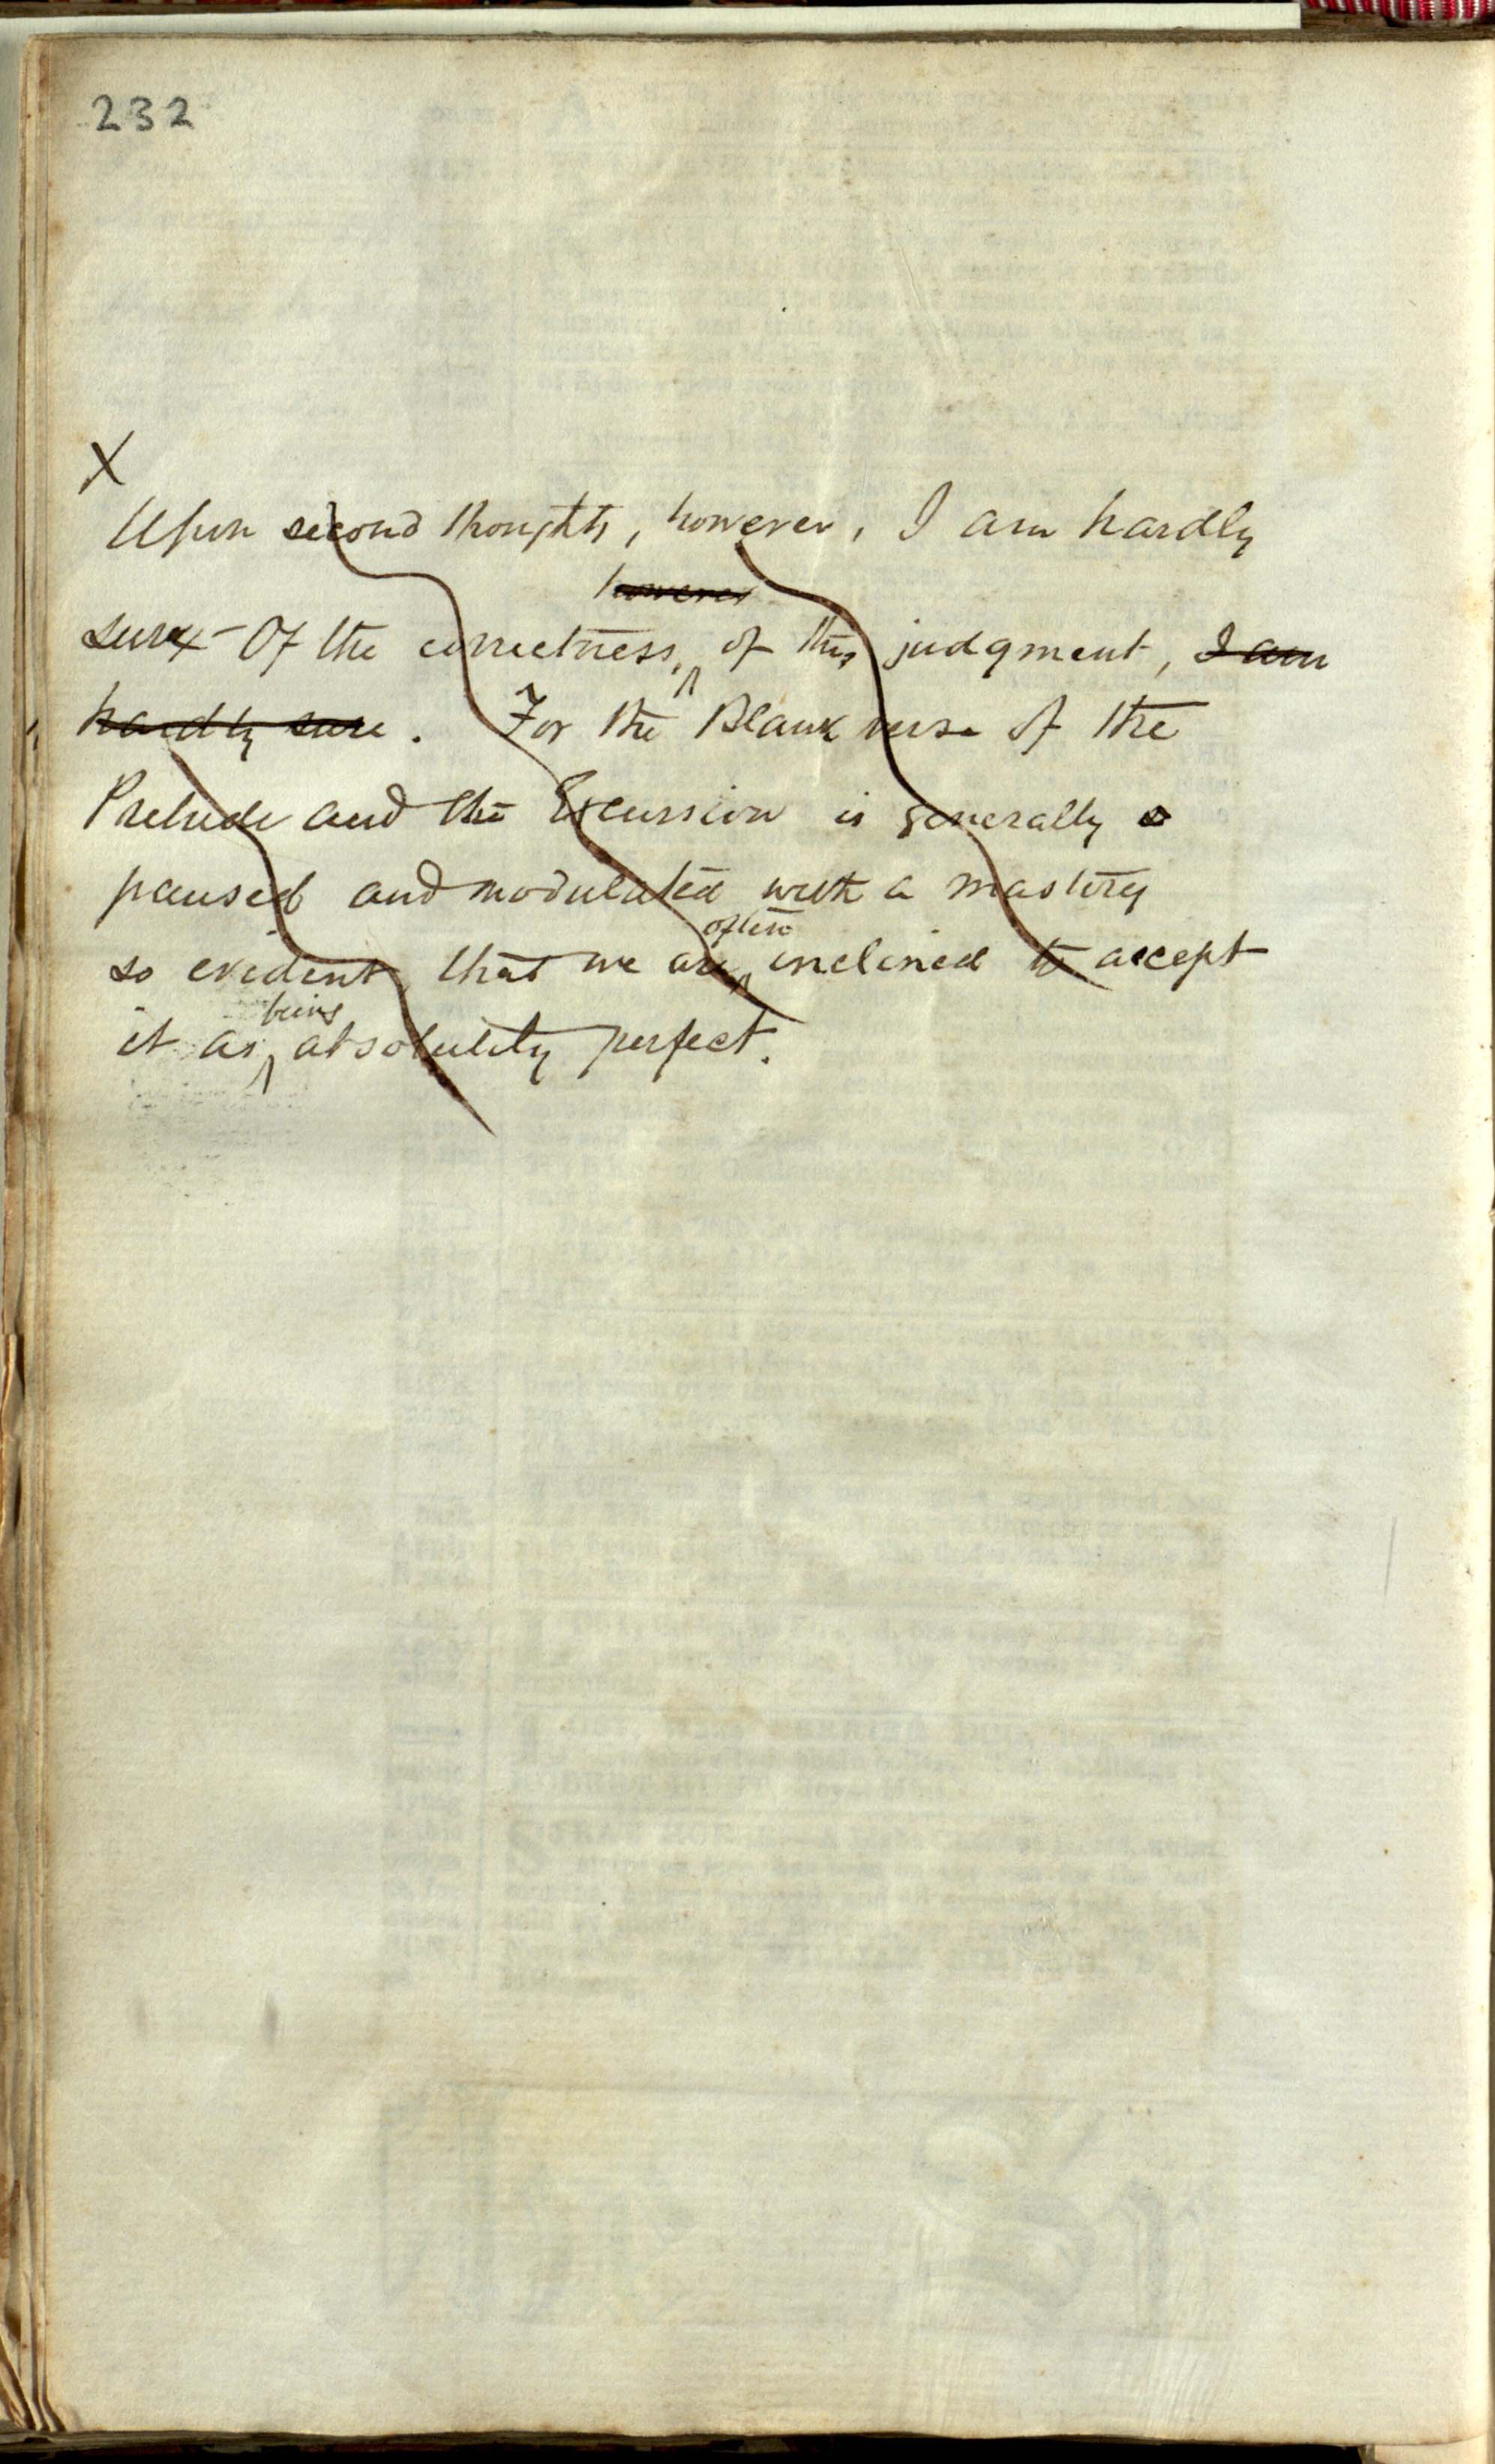 232
X
Upon second thoughts, however, I am hardly
however
sure Of the correctness, of this judgment, I am
hardly sure. For the Blank verse of the
Prelude and the Excursion is generally
paused and modulated with a mastery
often
so evident, that we are inclined to accept
being
it as absolutely perfect.